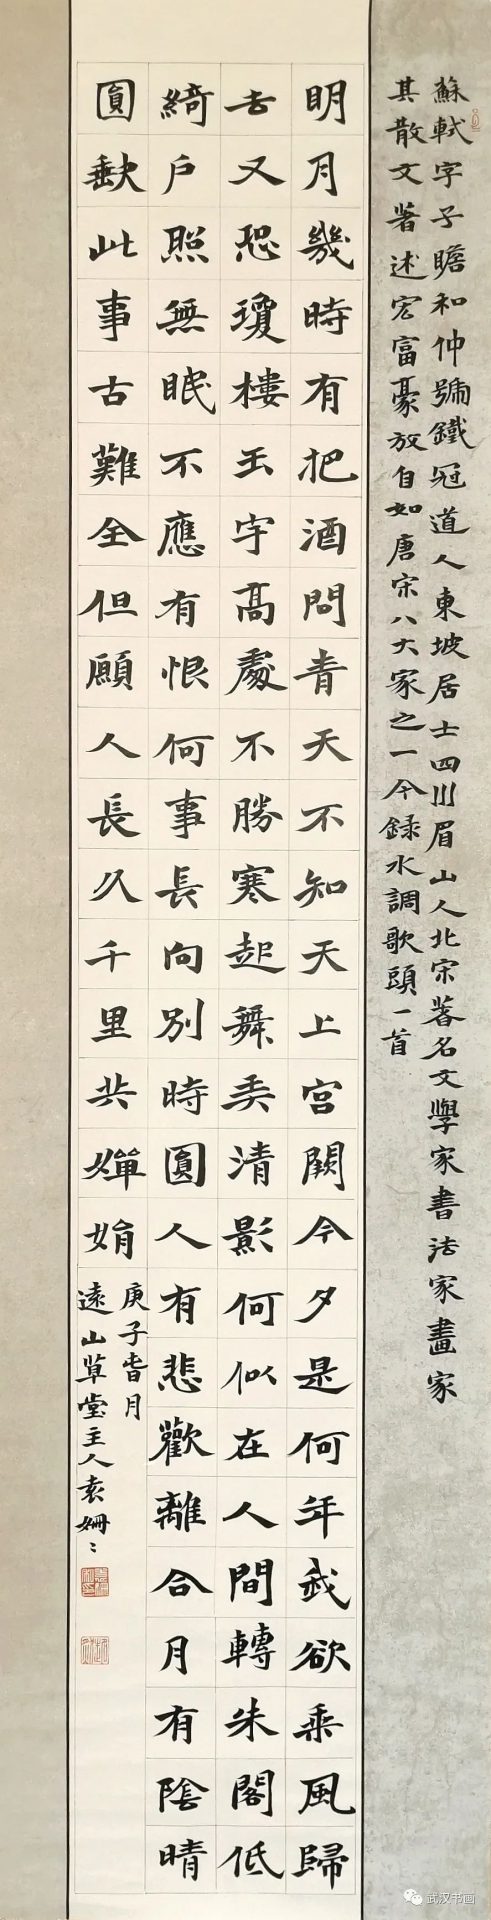 蘇軾字子瞻和仲號鐵冠道人東坡居士四川眉山人北宋著名文學家書法家畫家
其散文著述宏富豪放自如唐宋八大家之一今録水調歌頭一首
明月幾時有把酒問青天不知天上宮闕今夕是何年我欲乘風歸
去又恐瓊樓玉宇高處不勝寒起舞弄清影何似在人間轉朱閣低
綺戶照無眠不應有恨何事長向別時圓人有悲歡離合月有陰晴
圓缺此事古難全但願人長久千里共嬋娟
庚子旾月
遠山草堂主人袁姍〻
武汉书画